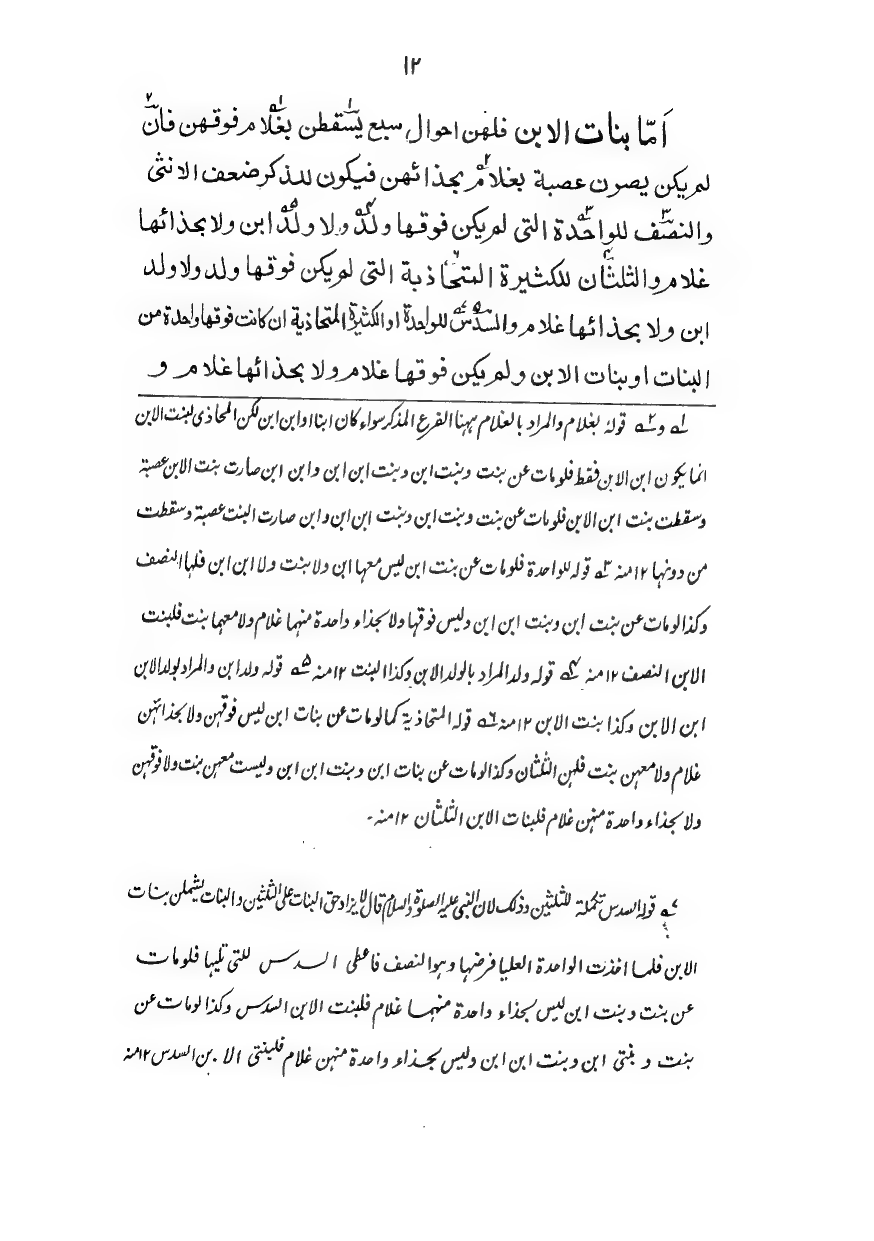 ١٢
اَمّا بنات الابن فلهن احوال سبع يسقطن بغلام فوقهن فان
لم يكن يصرن عصبة بغلام بحذائهن فيكون للذكر ضعف الانثى
والنصف للواحدة التى لم يكن فوقها ولد ولا ولد ابن ولا بحذائها
غلام والثلثان للكثيرة المتحاذية التى لم يكن فوقها ولد ولا ولد
ابن ولا بحذائها غلام والسدس للواحدة او الكثيرة المتحاذية ان كانت فوقها واحدة من
البنات او بنات الابن ولم يكن فوقها غلام ولا بحذائها غلام و
١ و ٢ قوله بغلام والمراد بالغلام ههنا الفرع المذكر سواء كان ابنا او ابن ابن لكن المحاذى لبنت الابن
انما يكون ابن الابن فقط فلو مات عن بنت وبنت ابن وبنت ابن ابن وابن ابن صارت بنت الابن عصبة
وسقطت بنت ابن الابن فلو مات عن بنت وبنت ابن وبنت ابن ابن وابن صارت البنت عصبة وسقطت
من دونها ١٢ منه ٣ قوله للواحدة فلو مات عن بنت ابن ليس معها ابن ولا بنت ولا ابن ابن فلها النصف
وكذا لو مات عن بنت ابن وبنت ابن ابن وليس فوقها ولا بحذاء واحدة منهما غلام ولا معهما بنت فلبنت
الابن النصف ١٢ منه ٤ قوله ولد المراد بالولد الابن وكذا البنت ١٢ منه ٥ قوله ولد ابن والمراد بولد الابن
ابن الابن وكذا بنت الابن ١٢ منه ٦ قوله المتحاذية كما لو مات عن بنات ابن ليس فوقهن ولا بحذائهن
غلام ولا معهن بنت فلهن الثلثان وكذا لو مات عن بنات ابن وبنت ابن ابن وليست معهن بنت ولا فوقهن
ولا بحذاء واحدة منهن غلام فلبنات الابن الثلثان ١٢ منه۔
٧ قوله السدس تكملة للثلثين وذلك لان النبى عليه الصلوة والسلام قال لا يزاد حق البنات على الثلثين والبنات يشملن بنات
الابن فلما اخذت الواحدة العليا فرضها وهو النصف فاعطى السدس للتى تليها فلو مات
عن بنت وبنت ابن ليس بحذاء واحدة منهما غلام فلبنت الابن السدس وكذا لو مات عن
بنت و بنتى ابن وبنت ابن ابن وليس بحذاء واحدة منهن غلام فلبنتى الابن السدس ١٢ منه